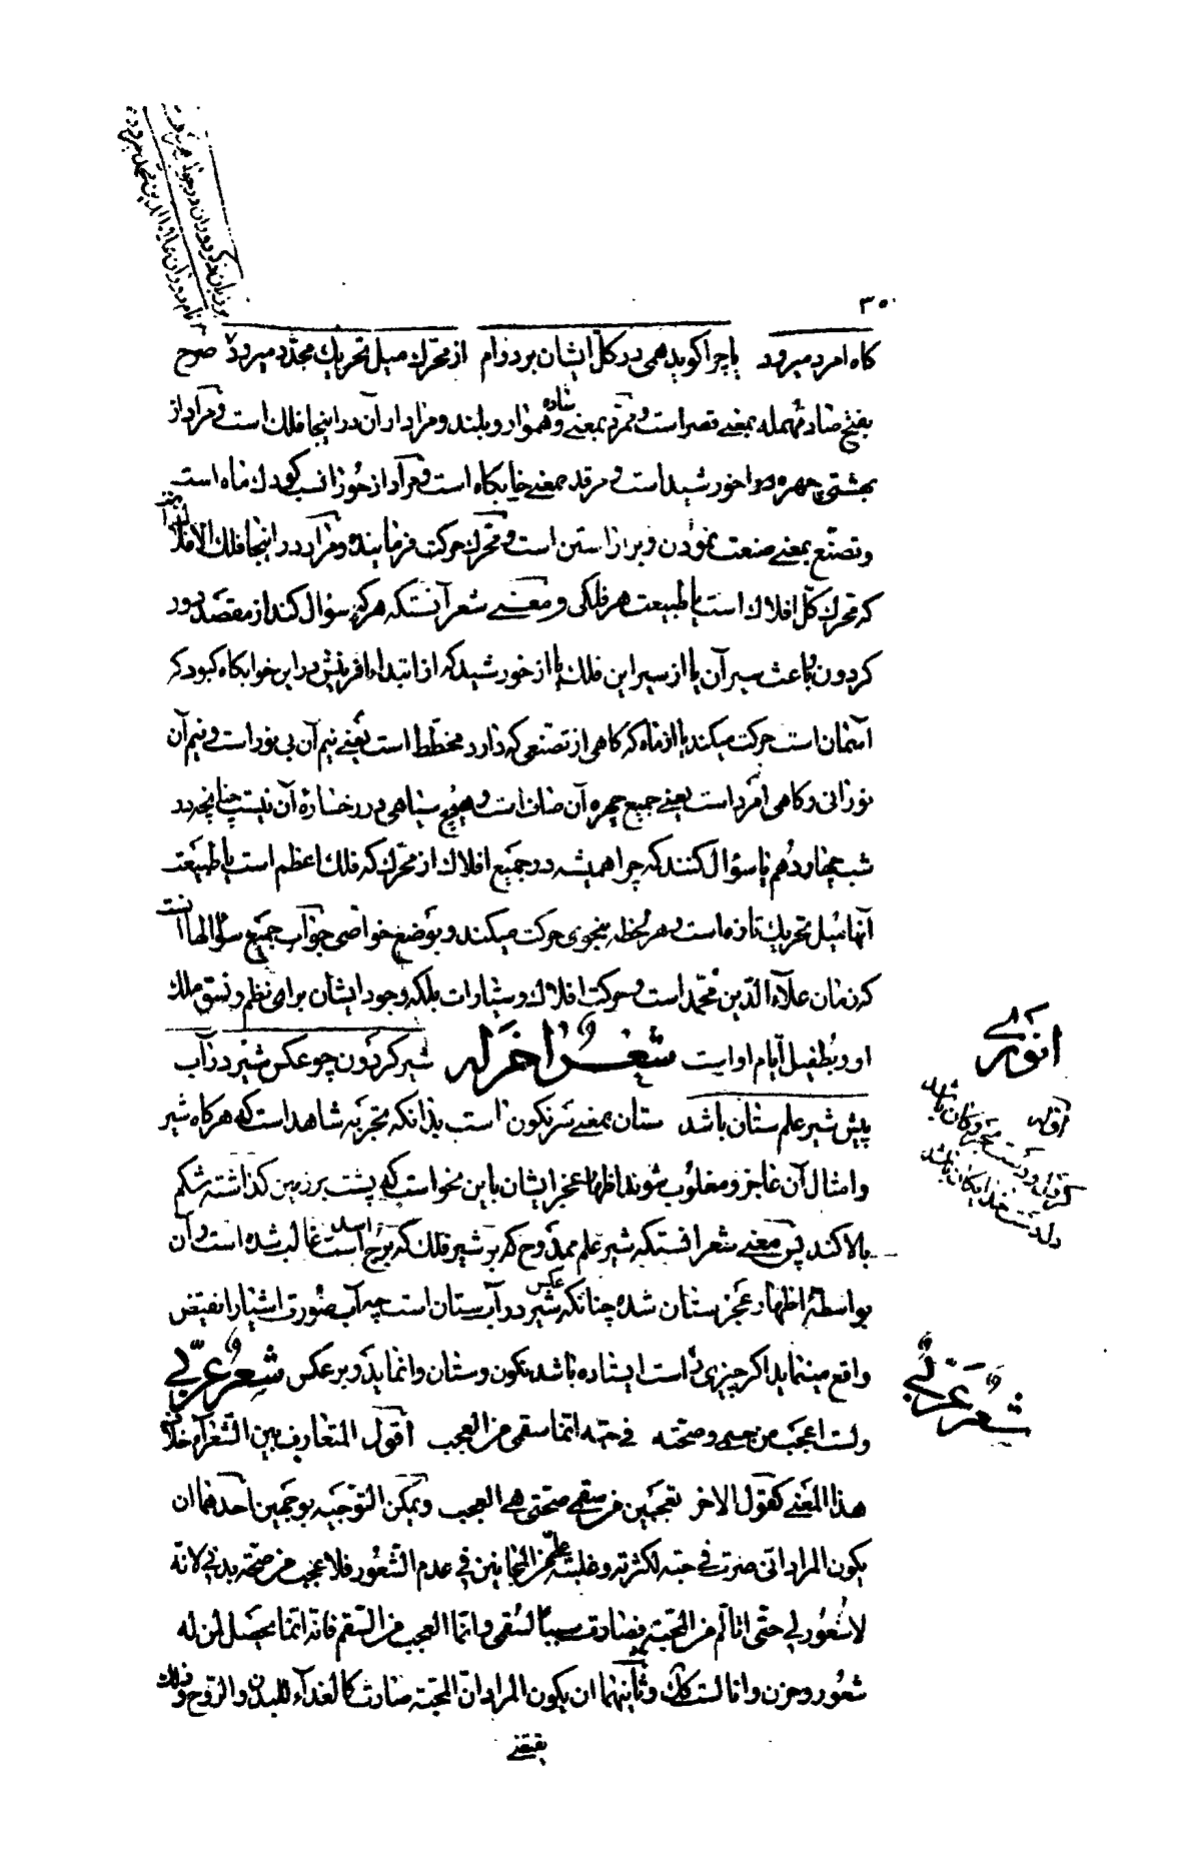 ۳۵۰
کاه امرد میرود یا چرا کوید همی در کل ایشان بر دوام از محرک میل تحریک مجدد میرود صرح
بفتح صاد مهمله بمعنی قصر است و ممرد بمعنی ساده و هموار و بلند و مراد از آن در اینجا فلک است و مراد از
بهشتی چهره خورشید است و مرقد بمعنی خابکاه است و مراد از کودک ماه است
و تصنع بمعنی صنعت نمودن و بر اراستن است و محرک حرکت فرماینده و مراد در اینجا فلک الافلاک
که محرک کل افلاک است یا طبیعت هر فلکی و معنی شعر آنستکه هر که سؤال کند از مقصد دور
کردون و باعث سیر آن یا از سیر این فلک یا از خورشید که از ابتداء افرینش در این خوابکاه کبود که
آسمان است حرکت میکند یا از ماه که کاهی از تصنعی که دارد مخطط است یعنی نیم آن بی نور است و نیم آن
نورانی و کاهی امرد است یعنی جمیع چهره آن صاف است و هیچ سیاهی در رخساره آن نیست چنانچه در
شب چهاردهم یا سؤال کنند که چرا همیشه در جمیع افلاک از محرک که فلک اعظم است یا طبیعت
آنها میل تحریک تازه است و هر لحظه بنحوی حرکت میکند و بوضع خواصی جواب جمیع سؤالها آنست
که زمان علاء الدین محمد است و حرکت افلاک و سیارات بلکه وجود ایشان برای نظم و نسق ملک
او و بطفیل ایام او است شعر اخر له شیر کردون چو عکس شیر در آب
پیش شیر علم ستان باشد ستان بمعنی سرنکون است بدانکه تجربه شاهد است که هر کاه شیر
و امثال آن عاجز و مغلوب شوند اظهار عجز ایشان باین نحو است که پشت بر زمین کذاشته شکم
بالا کند پس معنی شعر انستکه شیر علم ممدوح که بر شیر فلک که برج اسد است غالب شده است و آن
بواسطه اظهار عجز ستان شده چنانکه عکس شیر در آب ستان است چه آب صورت اشیا را بنقیض
واقع مینماید اکر چیزی راست ایستاده باشد نکون و ستان وانماید و بر عکس شعر عربی
ولست اعجب من جسمی و صحته فی حبه انما سقمی من العجب اقول المتعارف بین الشعراء خلاف
هذا المعنی کقول الاخر تعجبین من سقمی صحتی هی العجب و یمکن التوجیه بوجهین احدهما ان
یکون المراد انی صرت فی حبه لکثرته و غلبته من المجانین فی عدم الشعور فلا عجب من صحة بدنی لانه
لا شعور لی حتی اتالم من المحبة فصارت سببا لسقمی و انما العجب من السقم فانه انما یحصل لمن له
شعور و حزن و انا لست کذلک و ثانیهما ان یکون المراد ان المحبة صارت کالغذاء للبدن و الروح و ذلک
یقتضی
انوری
شعر عربی